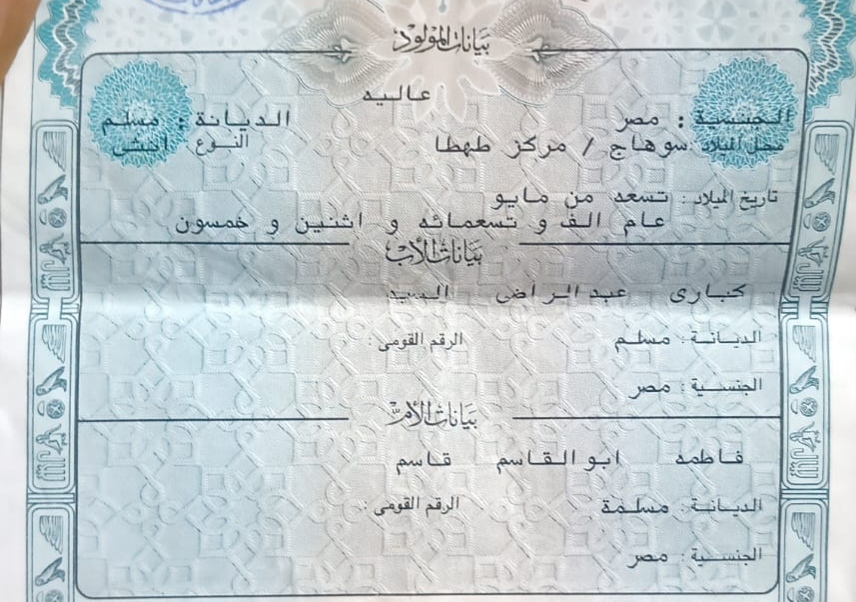 بيانات المولود
عاليه
الجنسية : مصر الديانة : مسلم
محل الميلاد : سوهاج / مركز طهطا النوع : انثى
تاريخ الميلاد : تسعه من مايو
عام الف و تسعمائه و اثنين و خمسون
بيانات الأب
كنبارى عبد الراضى السيد
الديانة : مسلم الرقم القومى :
الجنسية : مصر
بيانات الأم
فاطمه ابو القاسم قاسم
الديانة : مسلمة الرقم القومى :
الجنسية : مصر